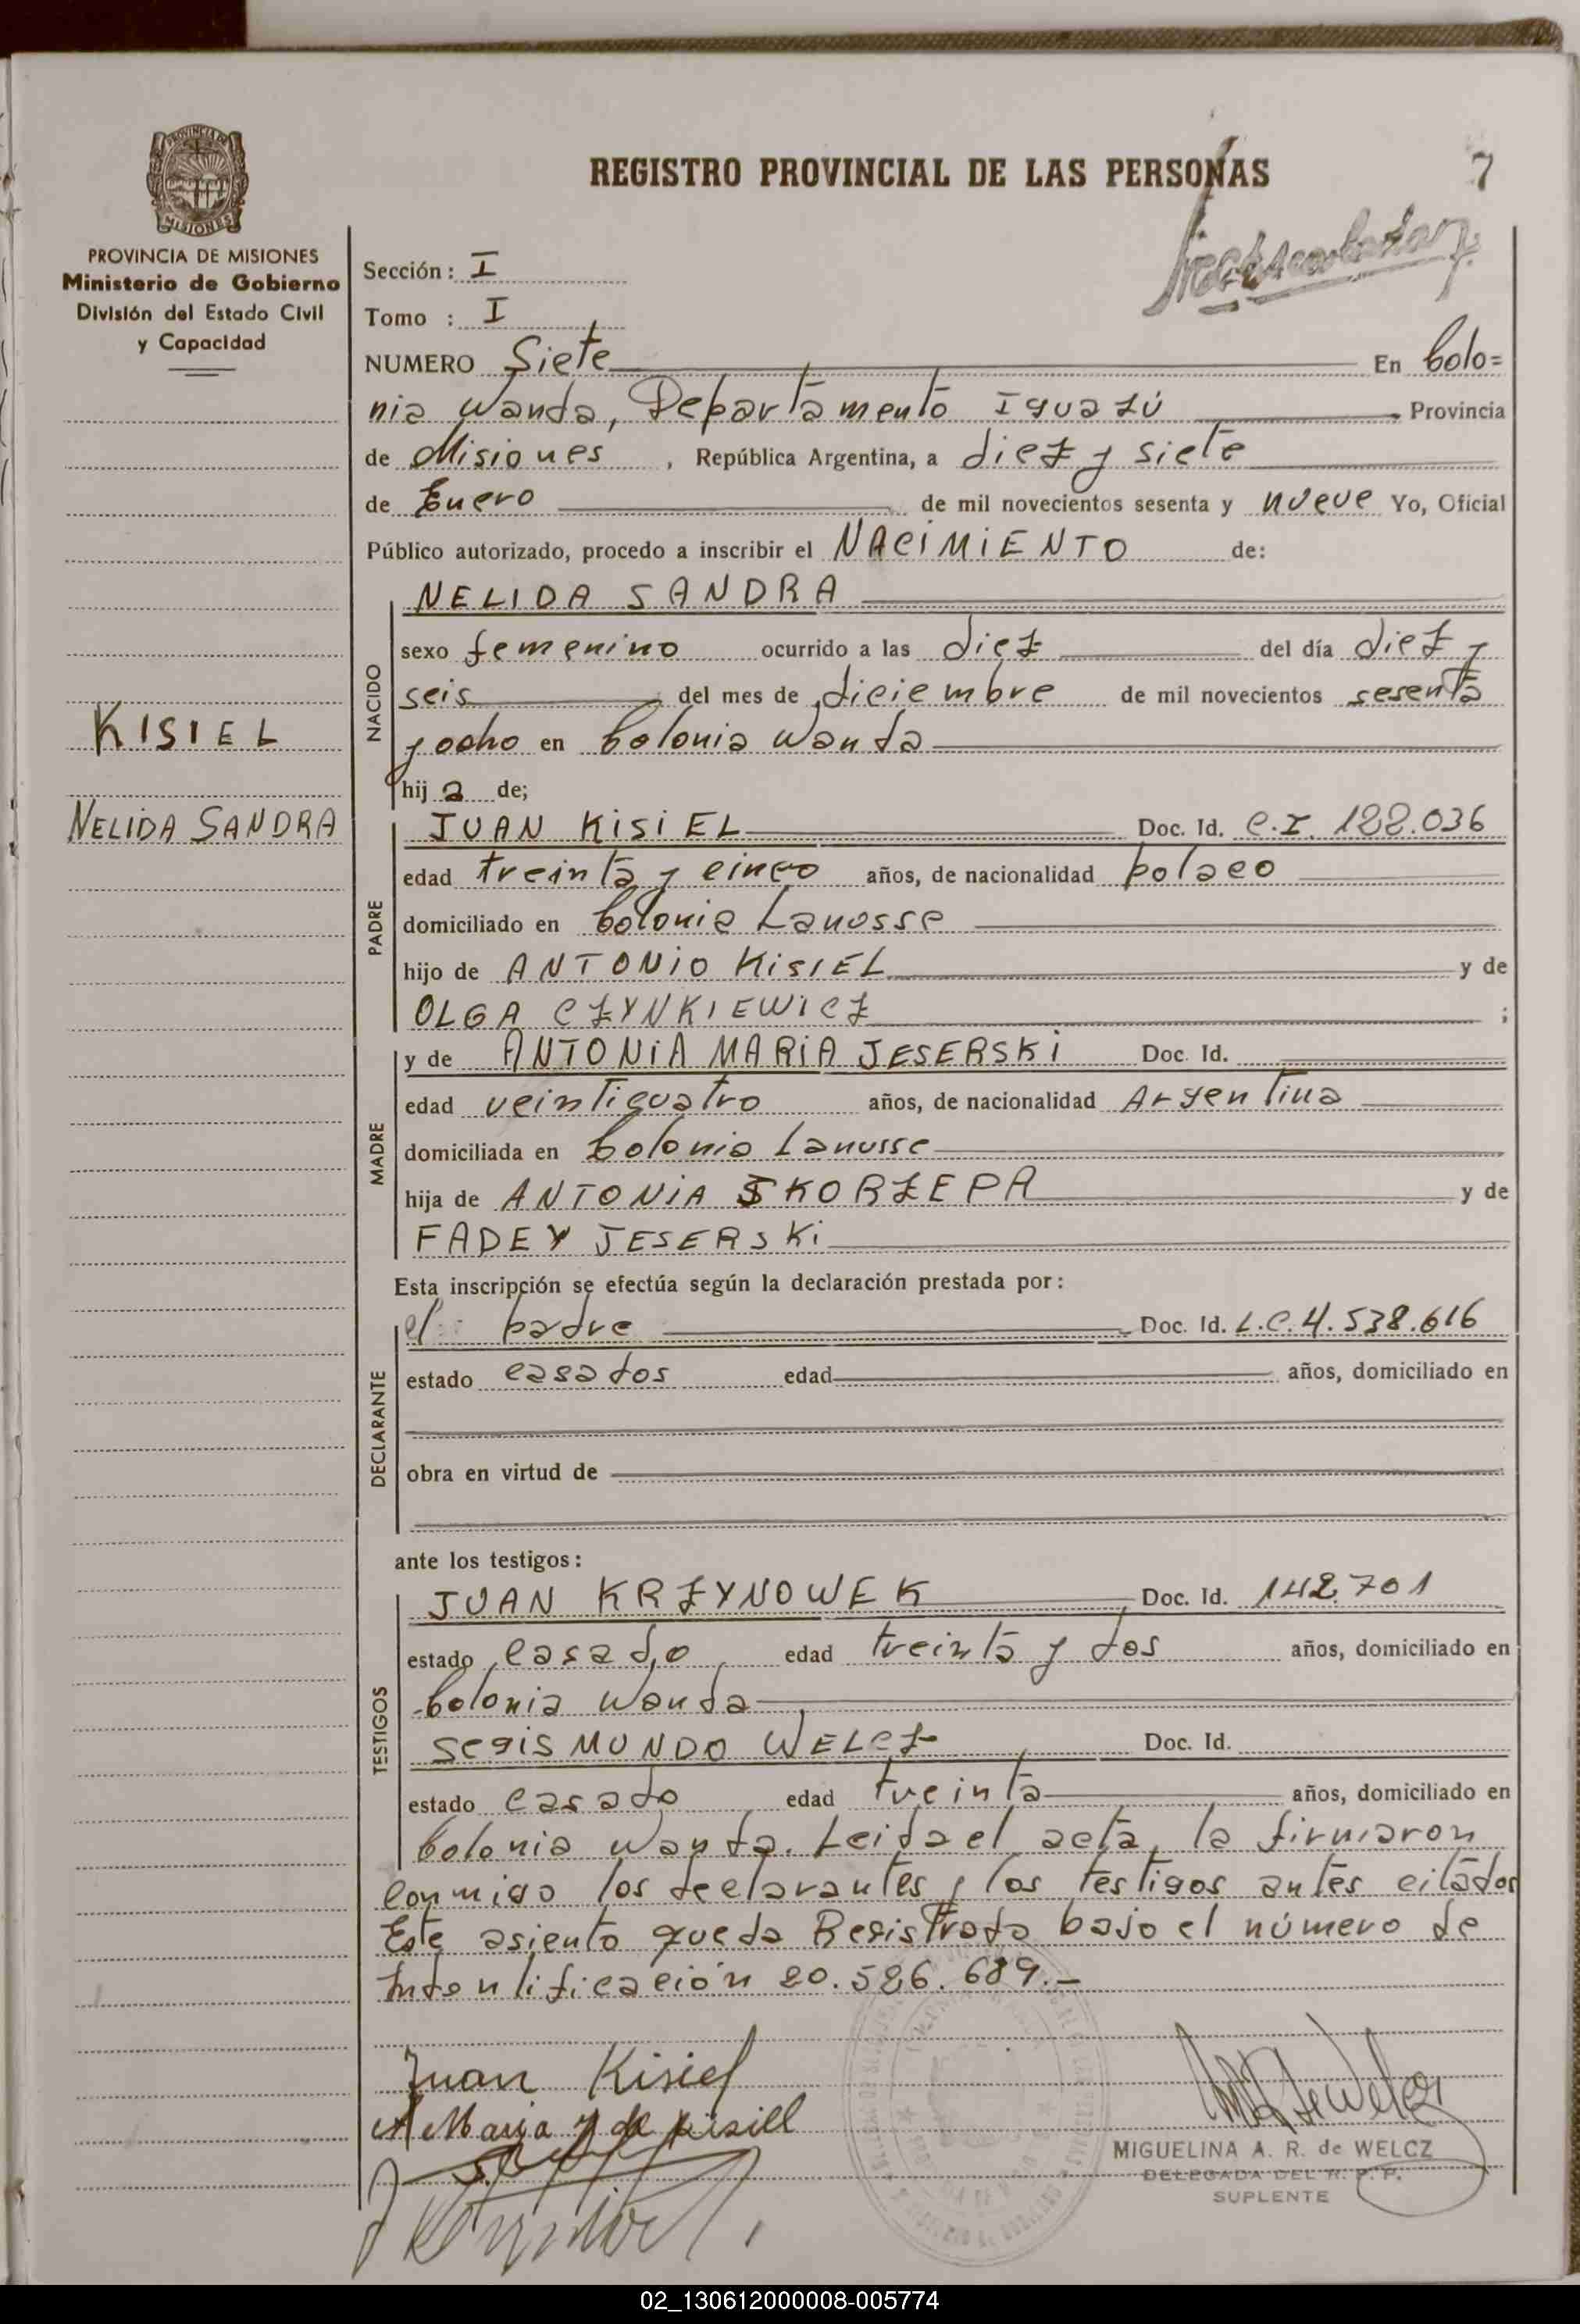 REGISTRO PROVINCIAL DE LAS PERSONAS
7
PROVINCIA DE MISIONES
Ministerio de Gobierno
División del Estado Civil
y Capacidad
KISIEL
NELIDA SANDRA
Sección: I
Tomo : I
NUMERO Siete En Colo=
nia Wanda, Departamento Iguazú Provincia
de Misiones, República Argentina, a diez y siete
de Enero de mil novecientos sesenta y nueve Yo, Oficial
Público autorizado, procedo a inscribir el NACIMIENTO de:
NACIDO
NELIDA SANDRA
sexo femenino ocurrido a las diez del día diez y
seis del mes de diciembre de mil novecientos sesenta
y ocho en Colonia Wanda
hija de;
PADRE
JUAN KISIEL Doc. Id. C.I. 122.036
edad treinta y cinco años, de nacionalidad polaco
domiciliado en Colonia Lanusse
hijo de ANTONIO KISIEL y de
OLGA CZYNKIEWICZ ;
MADRE
y de ANTONIA MARIA JESERSKI Doc. Id.
edad veinticuatro años, de nacionalidad Argentina
domiciliada en Colonia Lanusse
hija de ANTONIA SKORZEPA y de
FADEY JESERSKI
Esta inscripción se efectúa según la declaración prestada por:
DECLARANTE
el padre Doc. Id. L.C. 4.538.616
estado casados edad años, domiciliado en
obra en virtud de
ante los testigos:
TESTIGOS
JUAN KRZYNOWEK Doc. Id. 142.701
estado casado edad treinta y dos años, domiciliado en
Colonia Wanda
SEGISMUNDO WELCZ Doc. Id.
estado casado edad treinta años, domiciliado en
Colonia Wanda. Leida el acta, la firmaron
conmigo los declarantes y los testigos antes citados
Este asiento queda Registrado bajo el número de
Indentificación 20.586.689.-
Juan Kisiel
A Maria J de Kisiell
MIGUELINA A. R. de WELCZ
DELEGADA DEL R. P. P.
SUPLENTE
02_130612000008-005774